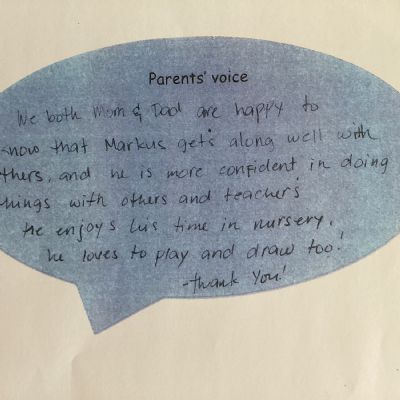 Parents' voice
We both Mom & Dad are happy to
know that Markus gets along well with
thers, and he is more confident in doing
things with others and teachers
He enjoys his time in nursery.
he loves to play and draw too!
-thank You!